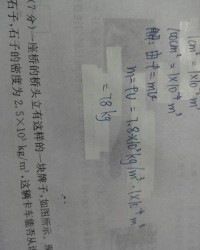 1cm³ = 1×10⁻⁶ m³
100cm³ = 1×10⁻⁴ m³
解:由 ρ=m/v
m=ρv = 7.8×10³kg/m³·1×10⁻⁴m³
= 78kg
7分) 一座桥的桥头立有这样的一块牌子,如图所示,
石子,石子的密度为 2.5×10³ kg/m³,这辆卡车能否从